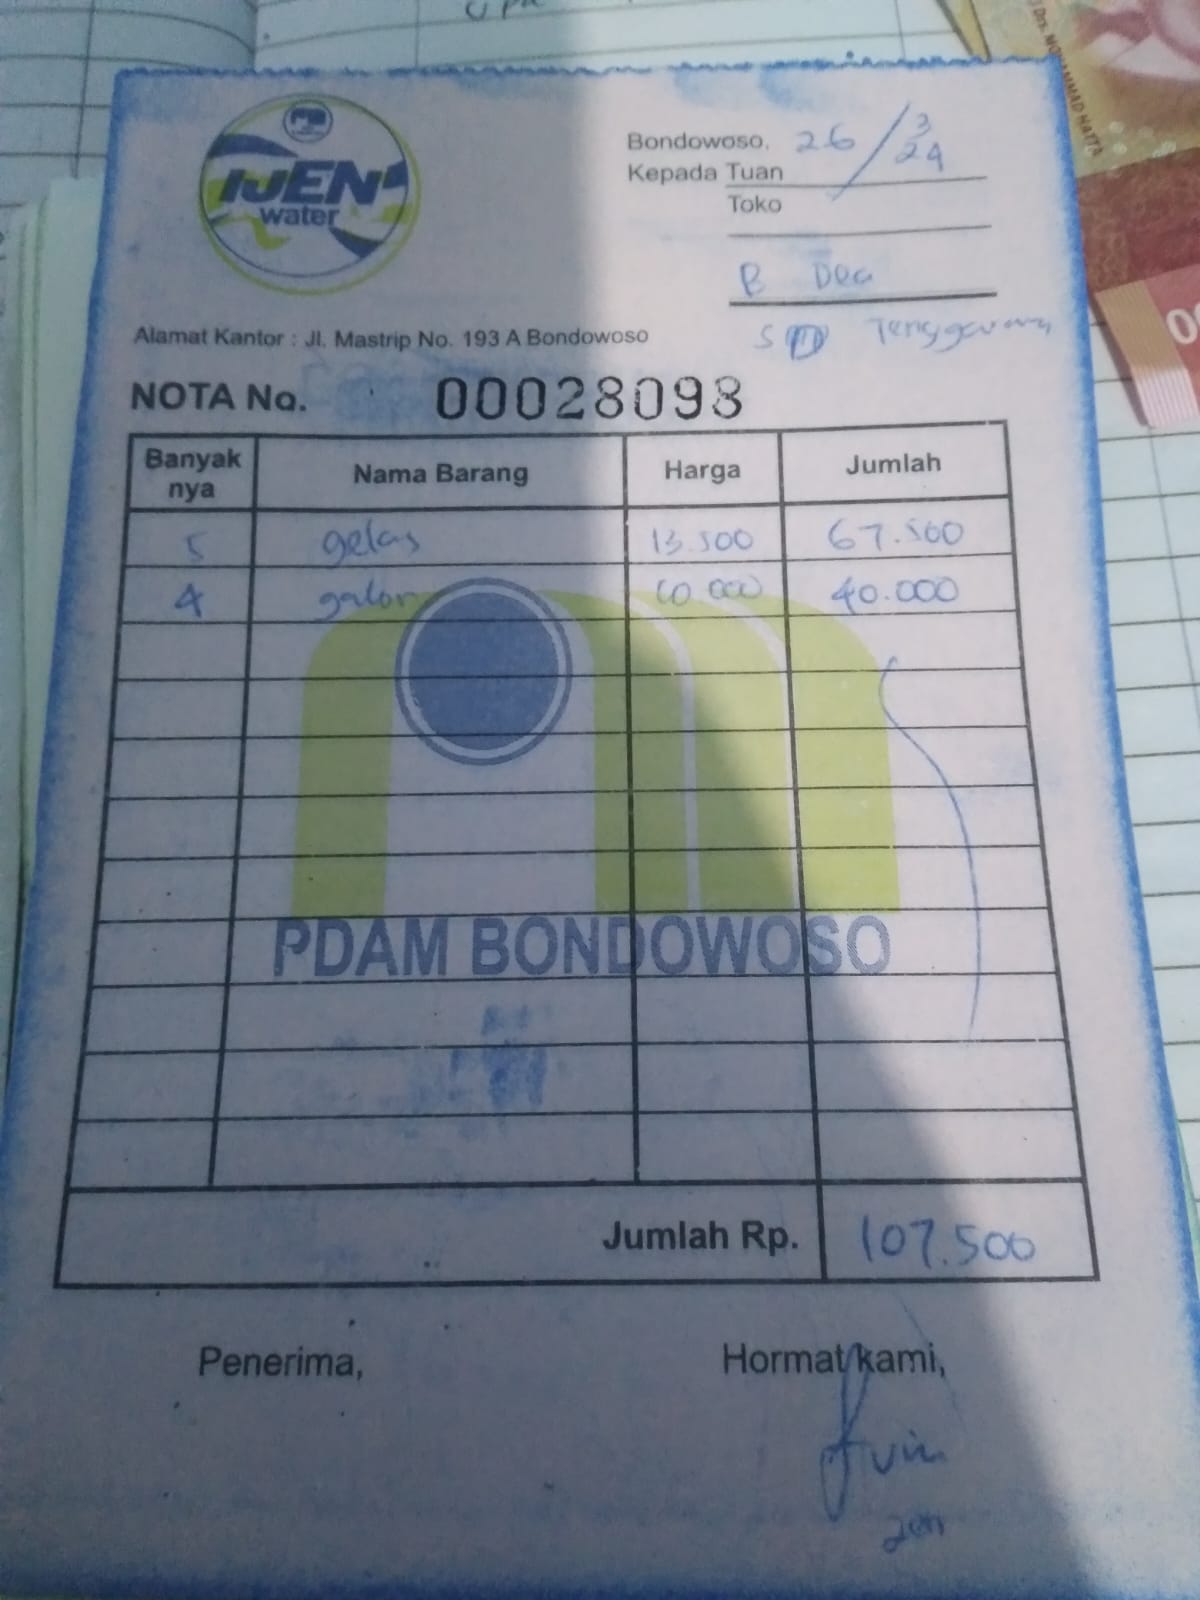 IJEN
water
Bondowoso, 26/3
24
Kepada Tuan
Toko
B Dea
SD Tenggarang
Alamat Kantor : Jl. Mastrip No. 193 A Bondowoso
NOTA No. 00028098
Banyak nya Nama Barang Harga Jumlah
5 gelas 13.500 67.500
4 galon 10.000 40.000
PDAM BONDOWOSO
Jumlah Rp. 107.500
Penerima, Hormat kami,
MOHAMMAD HATTA